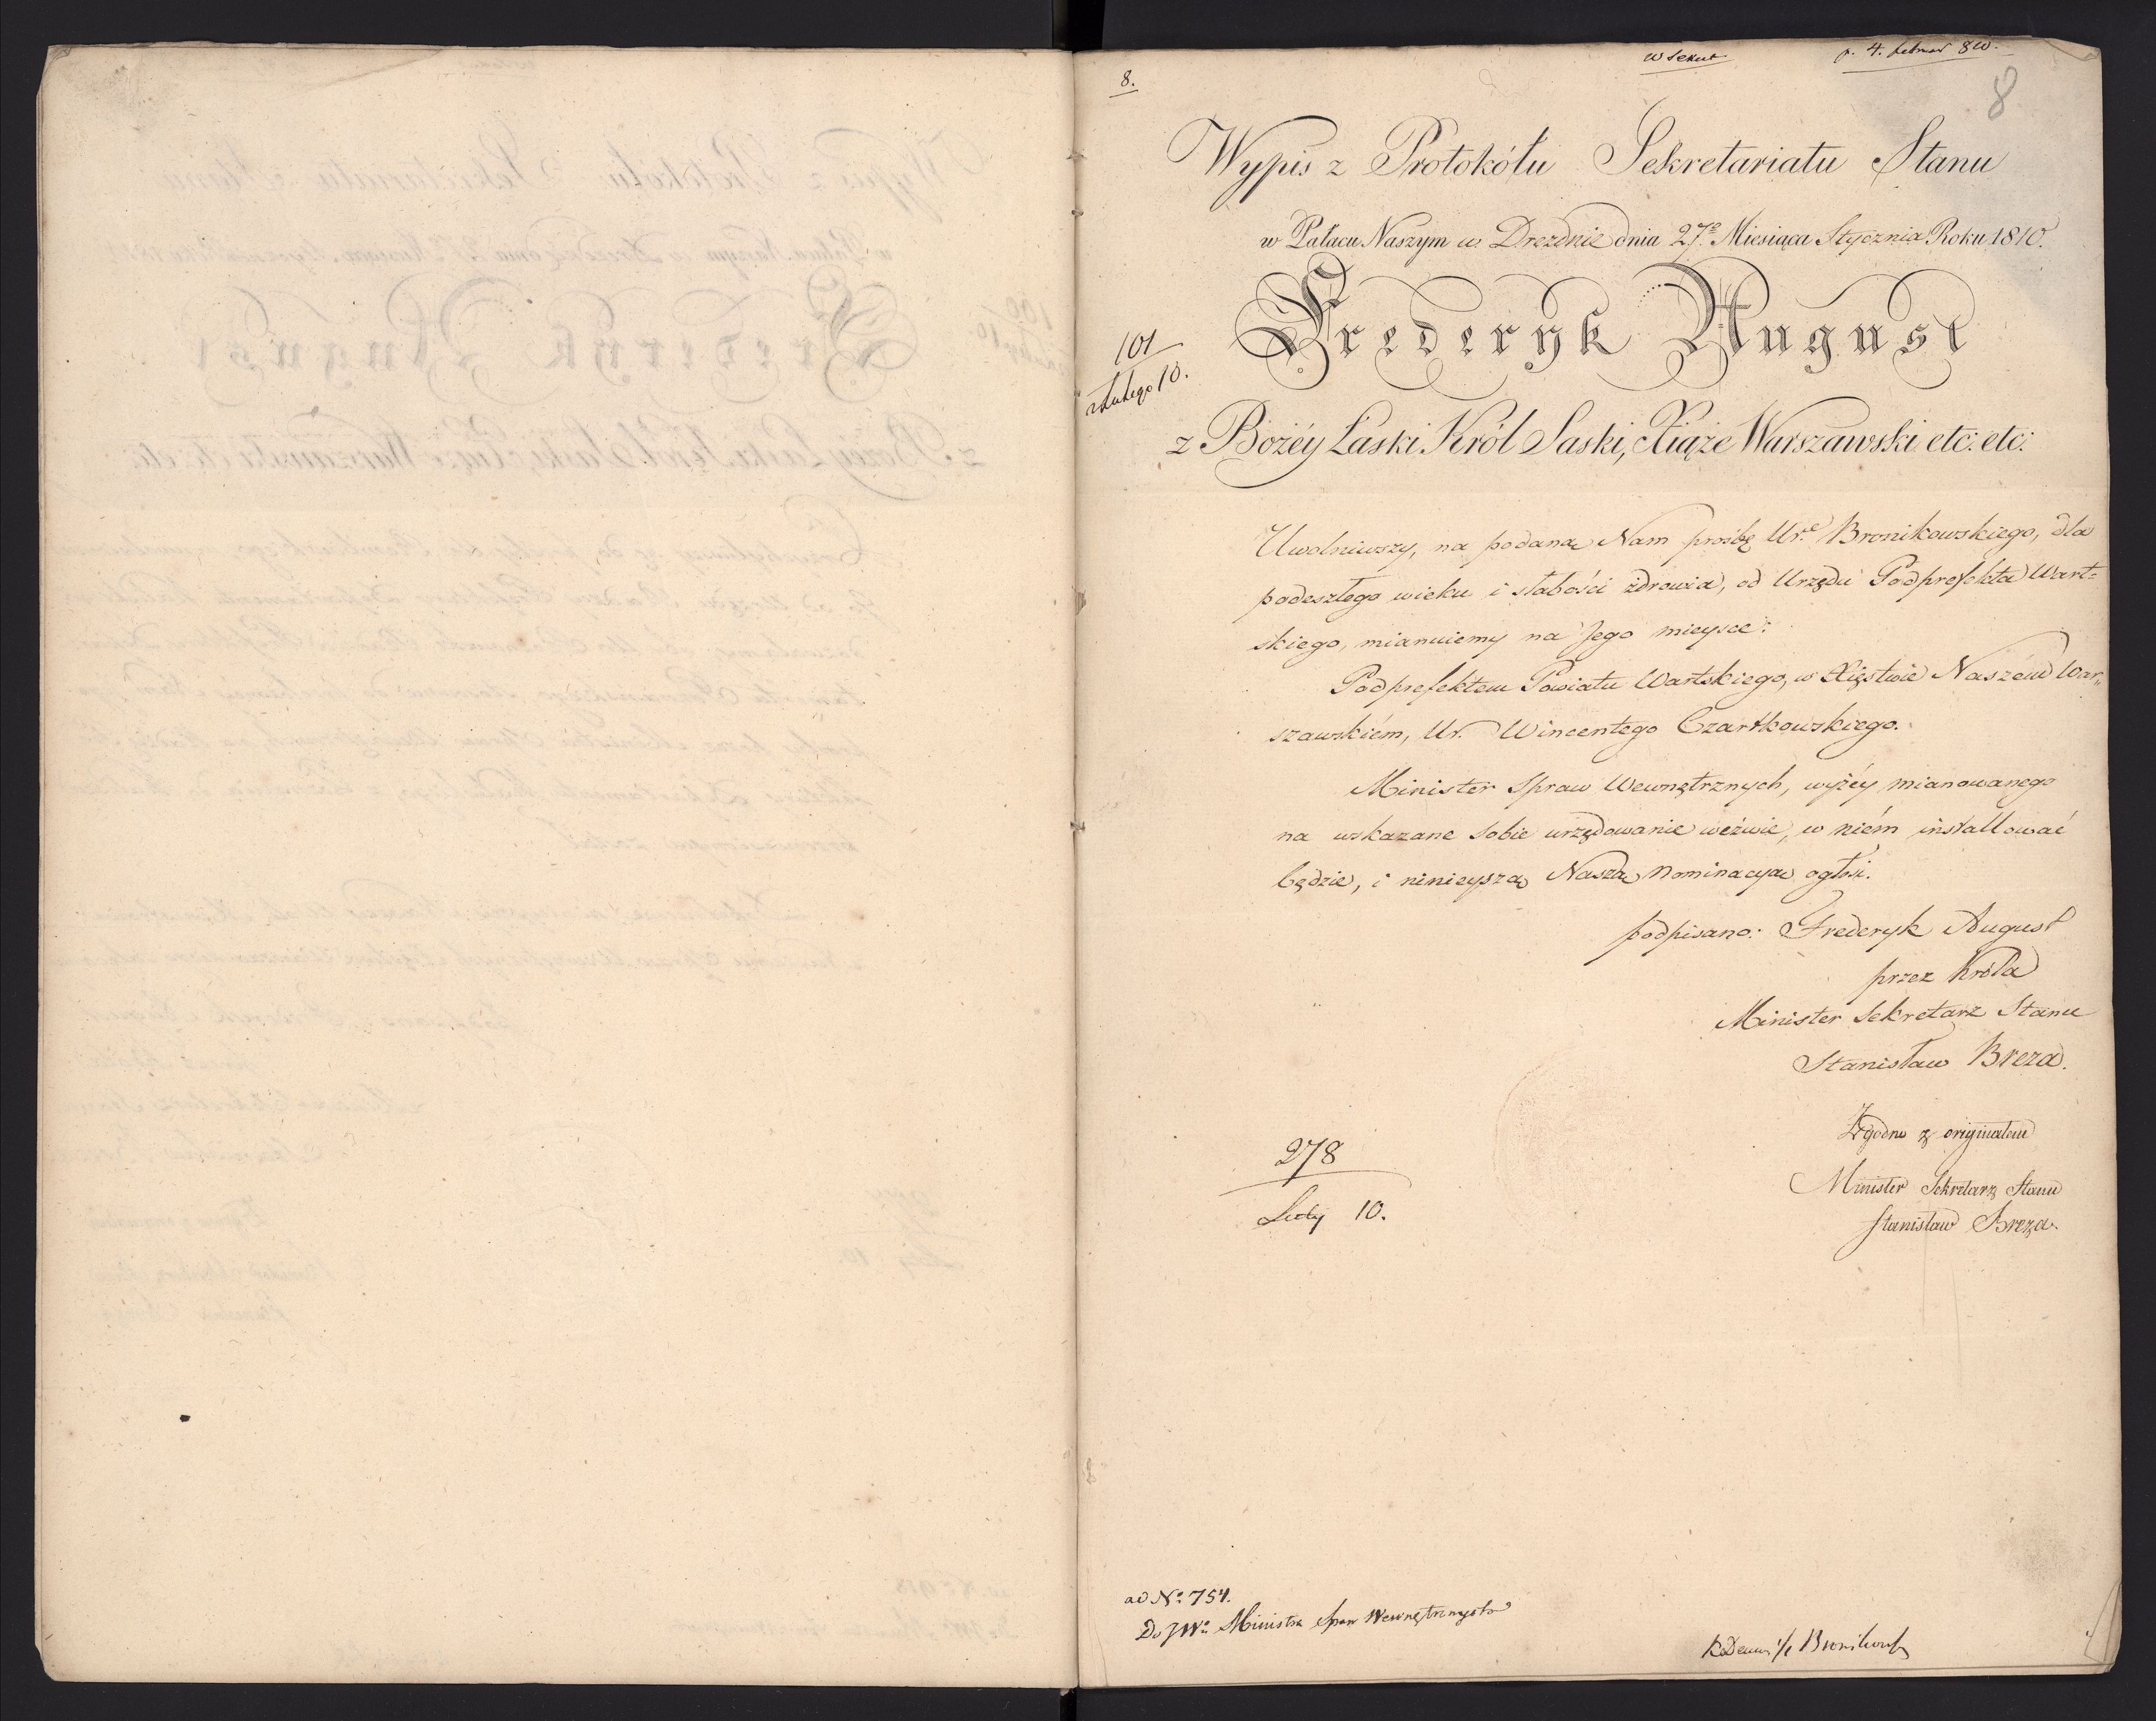 8.
p. 4. februar 810.
8
Wypis z Protokółu Sekretariatu Stanu
w Pałacu Naszym w Dreznie dnia 27º Miesiąca Stycznia Roku 1810.
Frederyk August
101
Lutego 10.
z Bożéy Łaski Król Saski, Xiąże Warszawski etc: etc:
Uwolniwszy, na podaną Nam prośbę Ur. Bronikowskiego, dla
podeszłego wieku i słabości zdrowia, od Urzędu Podprefekta Wart=
skiego, mianuiemy na Jego mieysce:
Podprefektem Powiatu Wartskiego, w Xięstwie Naszém War„
szawskiém, Ur. Wincentego Czartkowskiego.
Minister Spraw Wewnętrznych, wyżéy mianowanego
na wskazane sobie urzędowanie weźwie, w niém installować
będzie, i ninieyszą Naszą Nominacyą ogłosi.
podpisano: Frederyk August
przez Króla
Minister Sekretarz Stanu
Stanisław Breza.
Zgodno z originałem
Minister Sekretarz Stanu
Stanisław Breza.
278
Luty 10.
ad Nº 754.
Do JWº Ministra Spraw Wewnętrznych